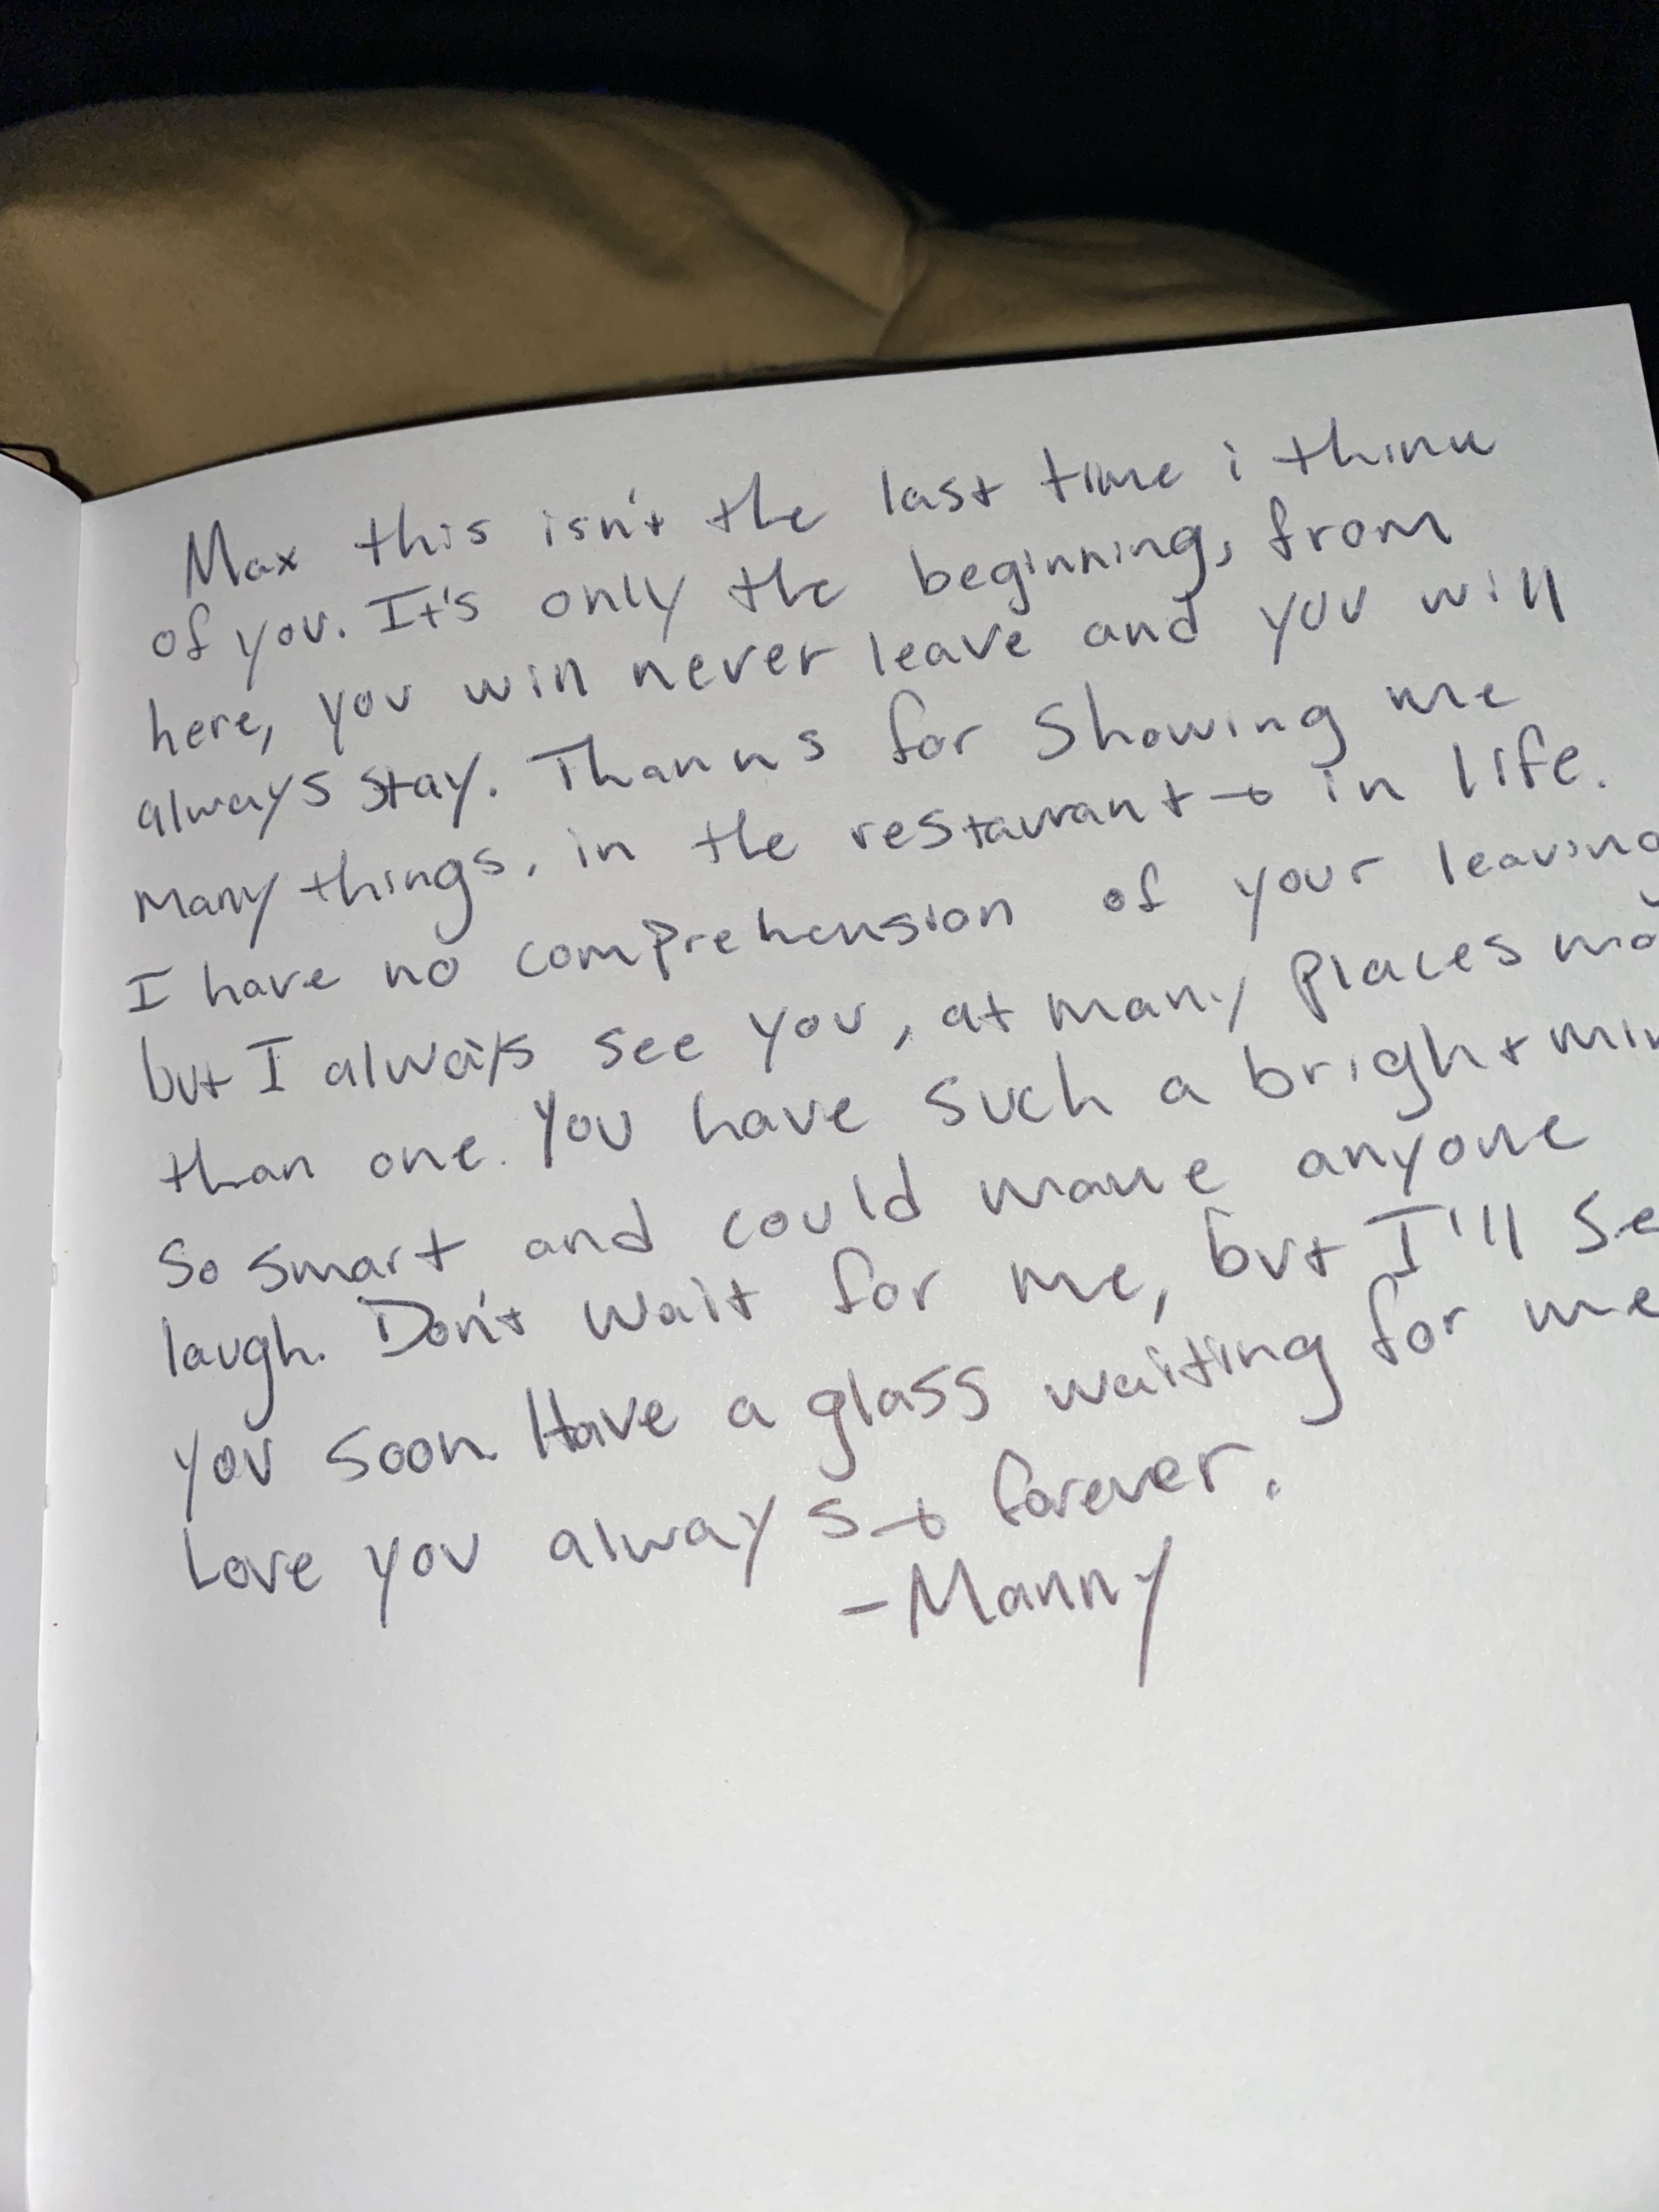 Max this isn't the last time i think
of you. It's only the beginning, from
here, you will never leave and you will
always stay. Thanks for showing me
many things, in the restaurant + in life.
I have no comprehension of your leaving
but I always see you, at many places mo
than one. You have such a bright min
so smart and could make anyone
laugh. Don't wait for me, but I'll se
you soon. Have a glass waiting for me
Love you always + forever.
-Manny